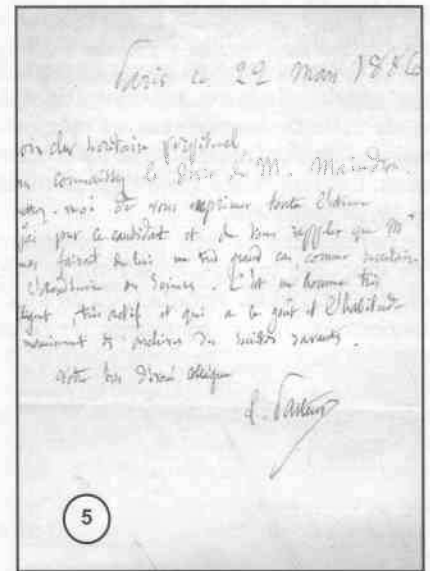 Paris le 22 mars 1886
mon cher secrétaire perpétuel
connaissez le désir de M. Maindron.
-moi de vous exprimer toute l'estime
j'ai pour ce candidat et de vous rappeler que Mr
faisait de lui un très grand cas, comme secrétaire
l'académie des Sciences. C'est un homme très
, très actif et qui a le goût et l'habitude
maniement des archives des sociétés savantes.
votre bien dévoué collègue
L. Pasteur
5